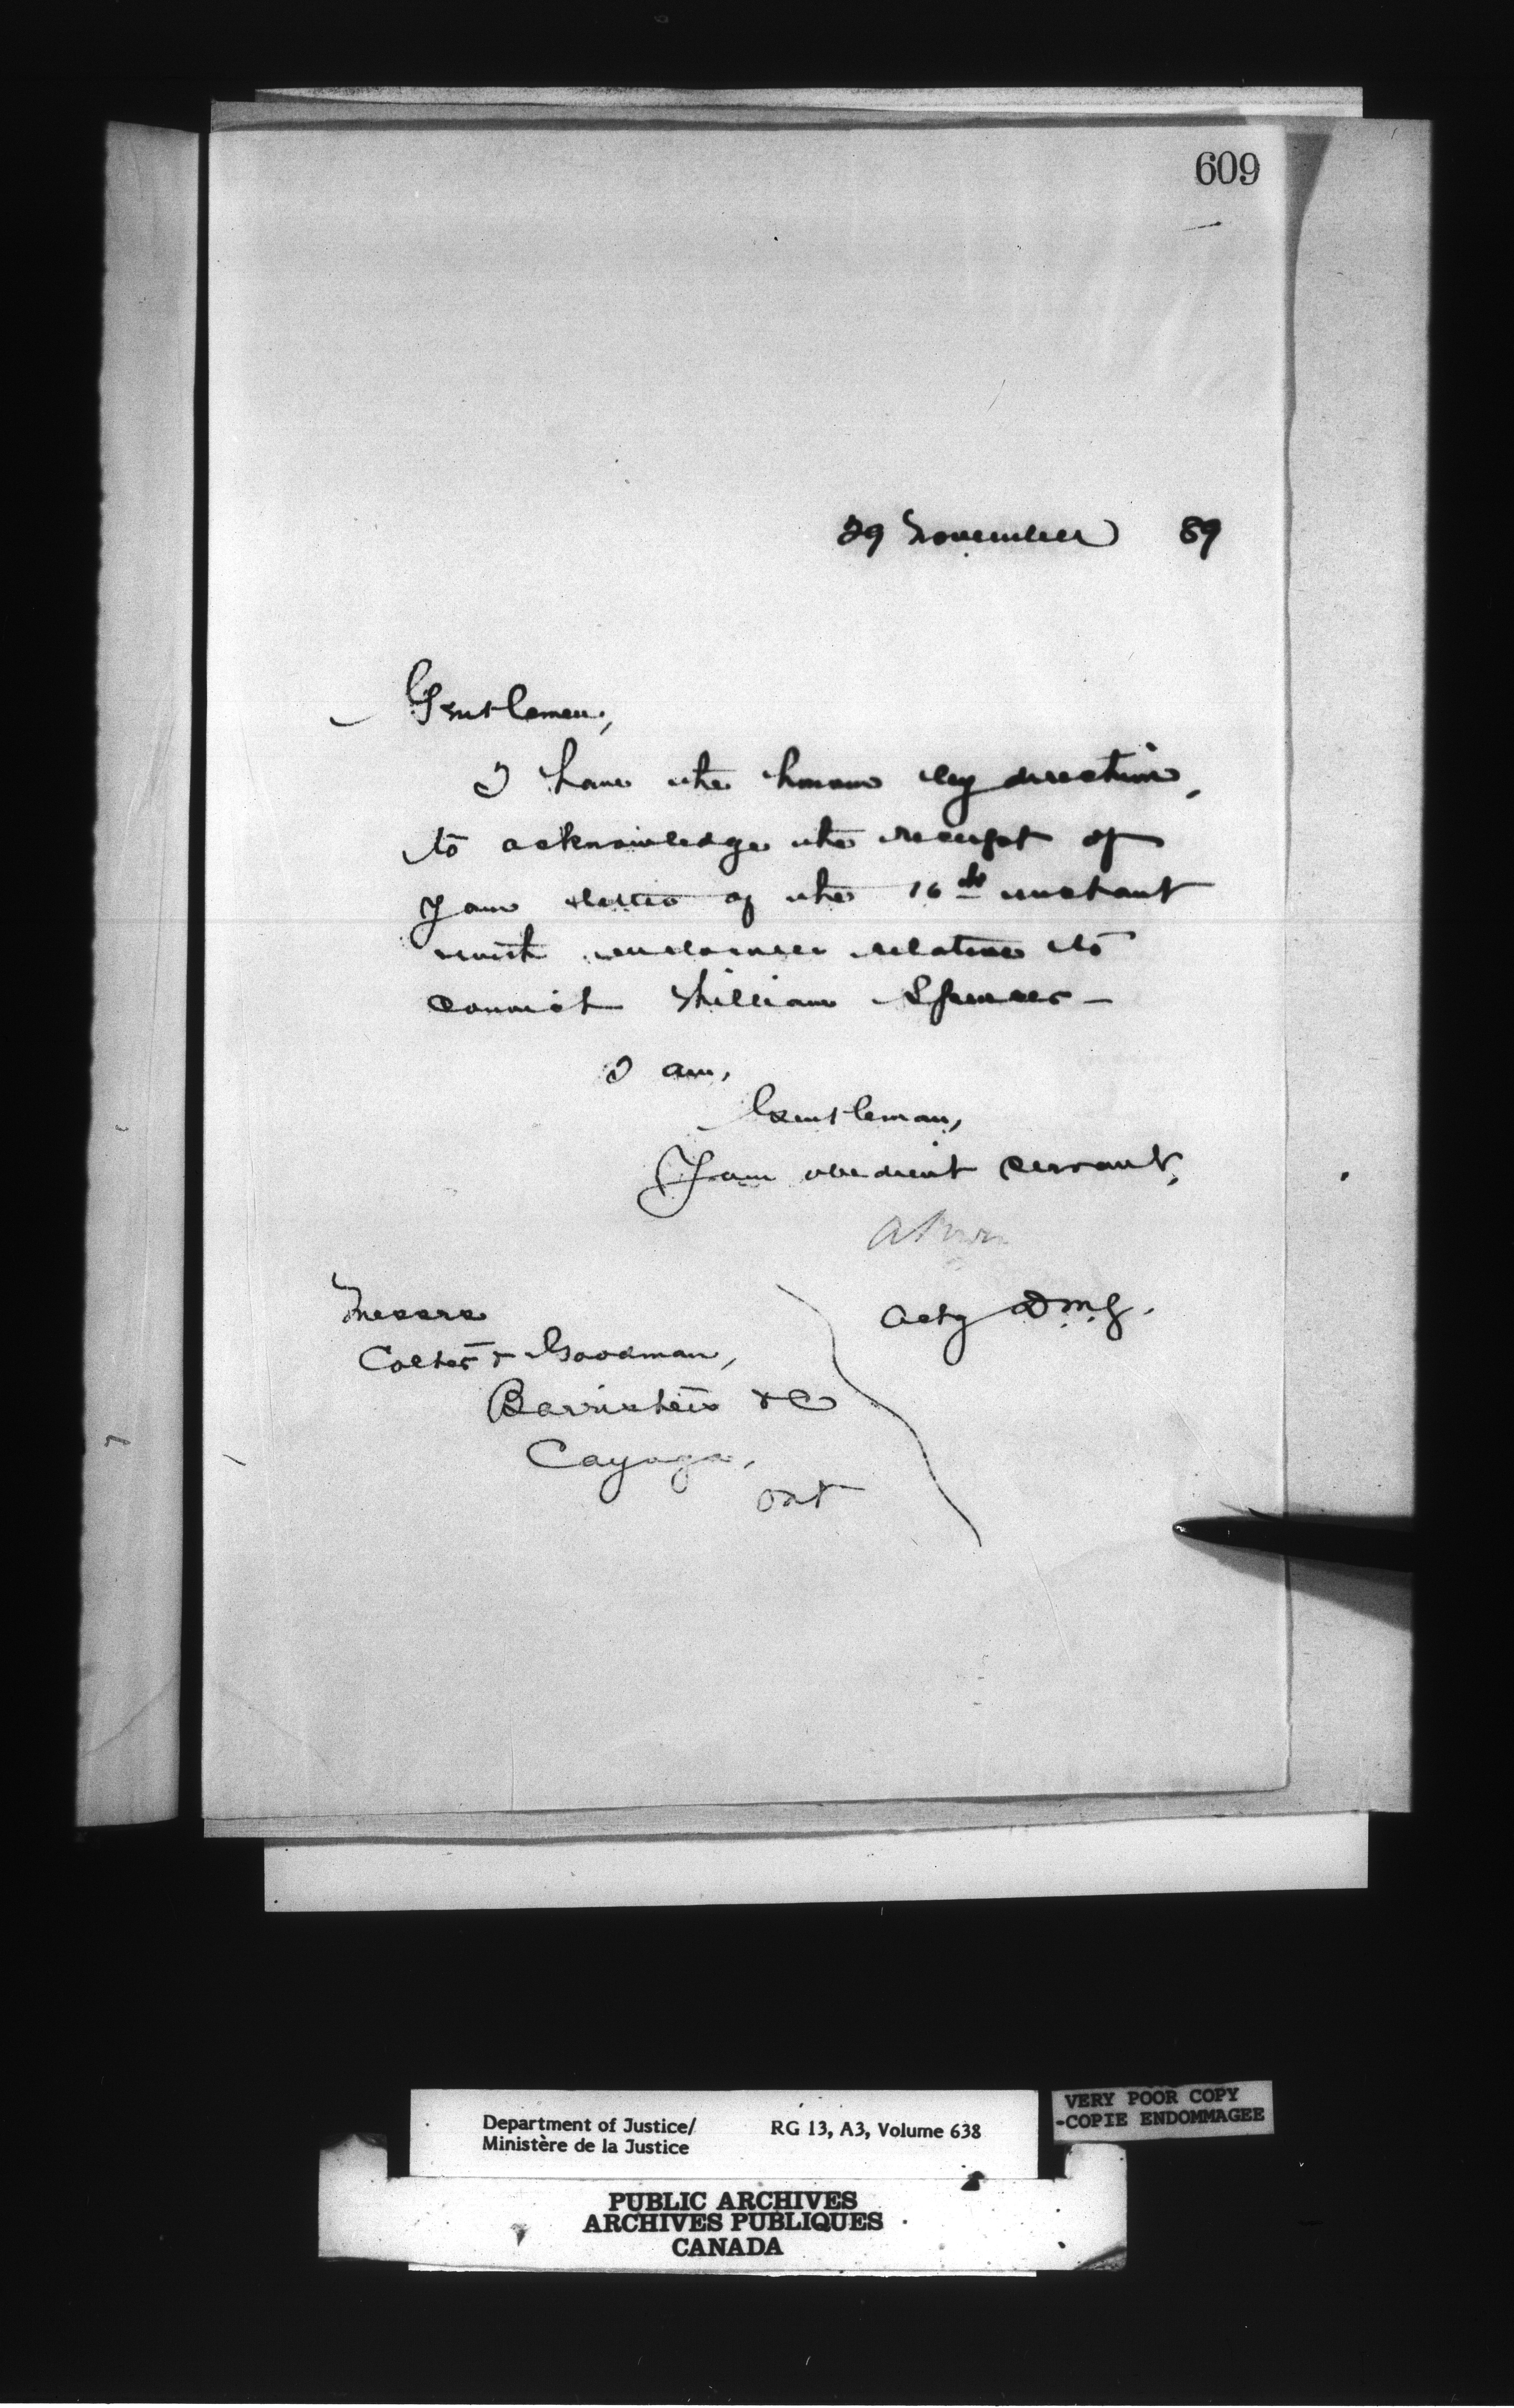 609
29 November 89
Gentlemen,
I have the honour by direction,
to acknowledge the receipt of
your letter of the 16th instant
with enclosures relative to
convict William Spencer -
I am,
Gentlemen,
Your obedient servant,
A Power
Actg D.M.J.
Messrs
Colter & Goodman,
Barristers &c
Cayuga,
Ont
Department of Justice/
Ministère de la Justice
RG 13, A3, Volume 638
VERY POOR COPY
-COPIE ENDOMMAGEE
PUBLIC ARCHIVES
ARCHIVES PUBLIQUES
CANADA